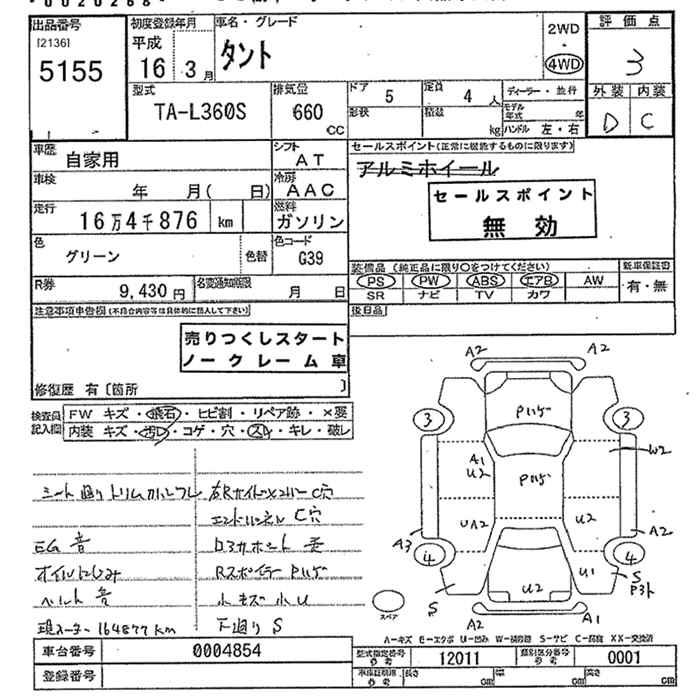 出品番号
[2136]
5155
初度登録年月
平成
16年 3月
車名・グレード
タント
2WD
・
4WD
評価点
3
外装 内装
D C
型式
TA-L360S
排気量
660
CC
ドア 5
形状
定員 4 人
積載 kg
ディーラー・並行
モデル年式 年
ハンドル 左・右
車歴
自家用
シフト
AT
セールスポイント(正常に機能するものに限ります)
アルミホイール
セールスポイント
無効
車検
年 月( 日)
冷房
AAC
走行
16万4千876 km
燃料
ガソリン
色
グリーン
色替
色コード
G39
装備品 (純正品に限り○をつけてください)
PS PW ABS エアB AW
SR ナビ TV カワ
新車保証書
有・無
R券
9,430円
名変通知期限
月 日
後日品
注意事項申告欄(不具合内容等は具体的に記入して下さい)
売りつくしスタート
ノークレーム車
修復歴 有〔箇所 〕
検査員記入欄
FW キズ・飛石・ヒビ割・リペア跡・×要
内装 キズ・ヨゴレ・コゲ・穴・スレ・キレ・破レ
EG 音
オイルにじみ
ベルト 音
現メーター 164877km
Rスポイラー Pハゲ
小キズ 小U
下廻り S
A2 A2
3 3
Pハゲ
A1
U2
Pハゲ
W2
UA2
U2
A3
A2
4 4
U1
S
S
U2
A2
A1
スペア
A-キズ E-エクボ U-凹み W-補修跡 S-サビ C-腐食 XX-交換済
車台番号
0004854
型式指定番号
参考
12011
類別区分番号
参考
0001
登録番号
車庫証明用
参考
長さ cm
幅 cm
高さ cm